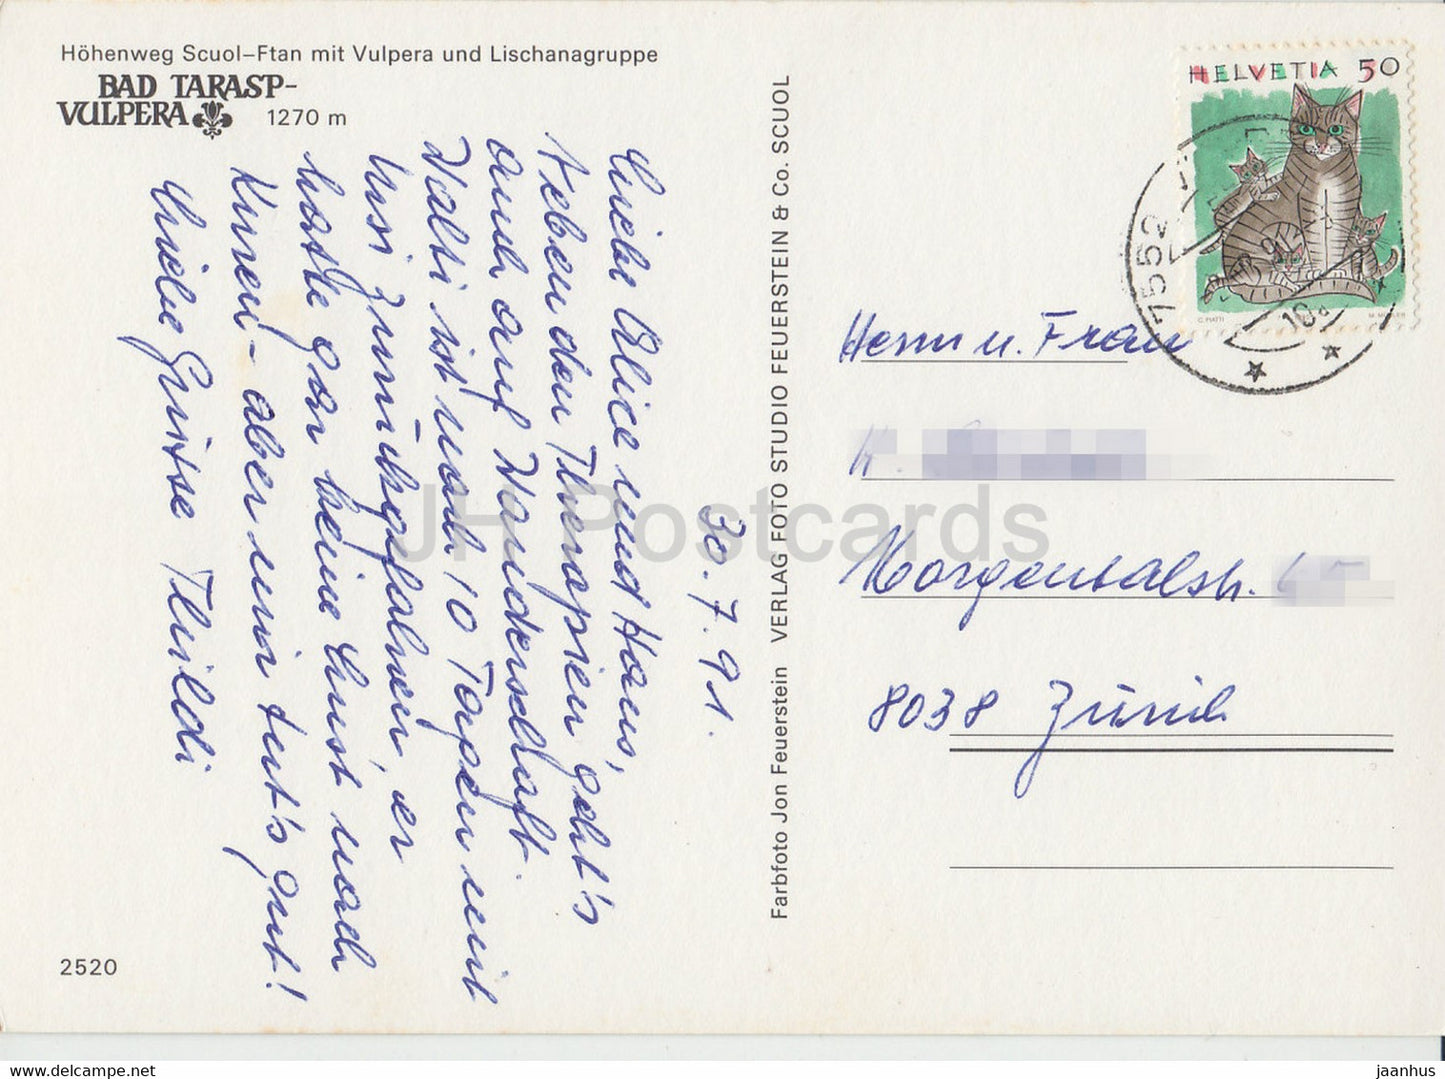 Höhenweg Scuol–Ftan mit Vulpera und Lischanagruppe
BAD TARASP-
VULPERA 1270 m
30.7.91.
Liebe Alice und Hans,
Neben den Therapien geht's
auch auf Wanderschaft.
Walti ist nach 10 Tagen mit
Ursi zurückgefahren, er
hatte gar keine Lust nach
Kuren - aber mir tut's gut!
Liebe Grüsse Thildi
2520
Farbfoto Jon Feuerstein VERLAG FOTO STUDIO FEUERSTEIN & Co. SCUOL
HELVETIA 50
C. PIATTI
7552
Herrn u. Frau
K.
Morgentalstr.
8038 Zürich
JH Postcards
delcampe.net
jaanhus